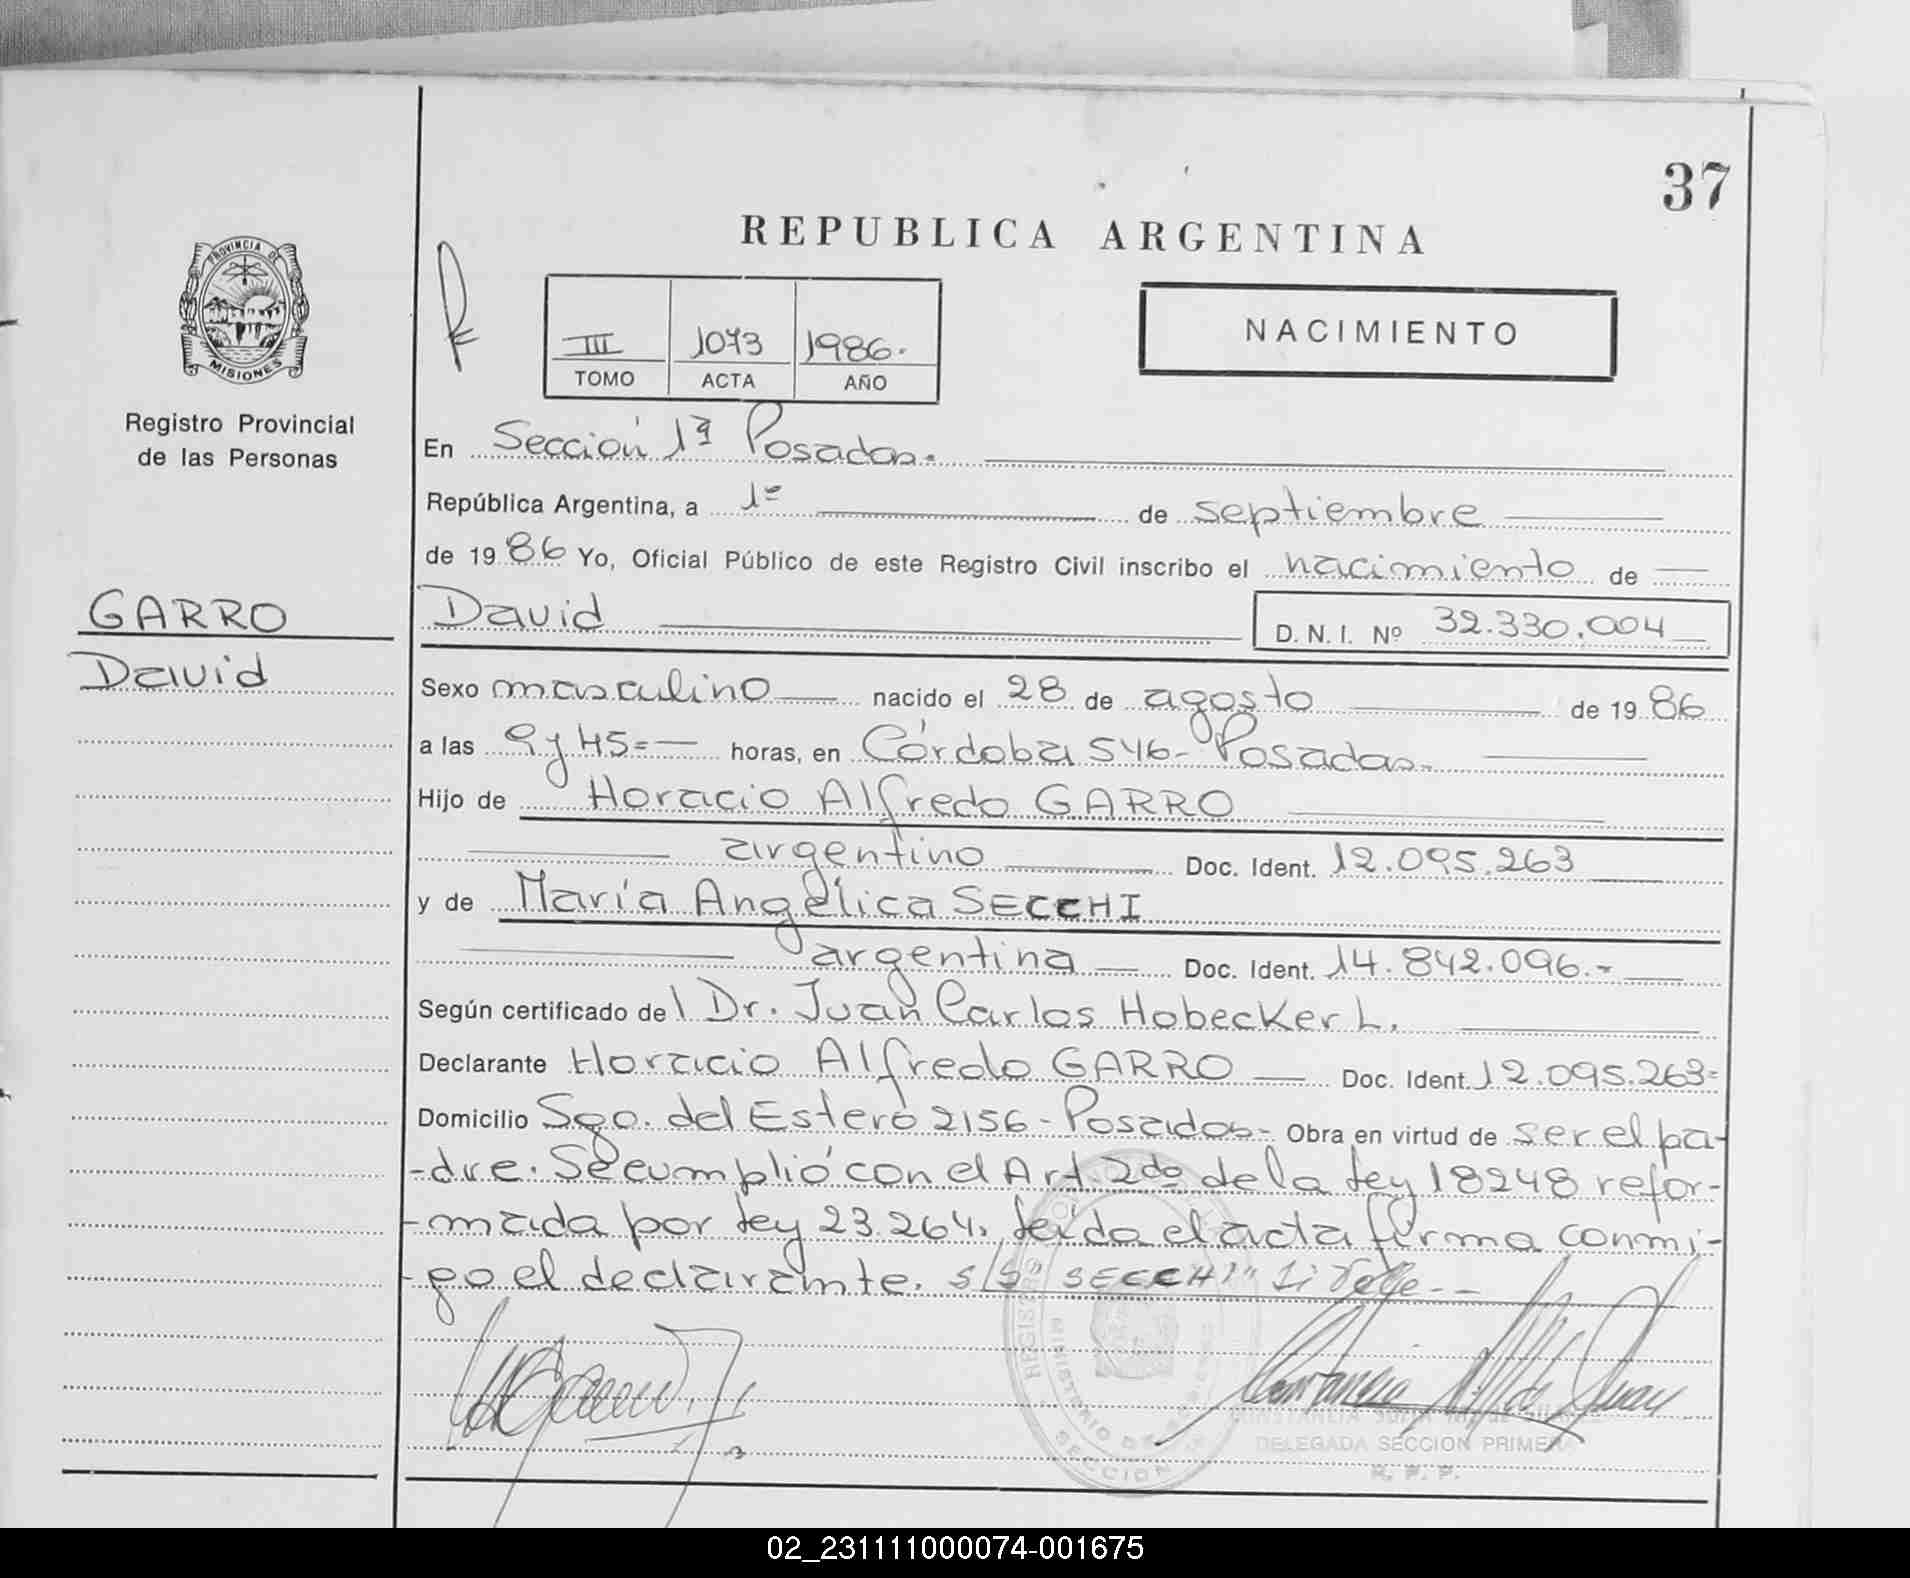 37
REPUBLICA ARGENTINA
PROVINCIA DE
MISIONES
Registro Provincial
de las Personas
III 1073 1986.
TOMO ACTA AÑO
NACIMIENTO
En Sección 1ª Posadas.
República Argentina, a 1º de septiembre
de 1986 Yo, Oficial Público de este Registro Civil inscribo el nacimiento de
GARRO
David
David D. N. I. Nº 32.330.004
Sexo masculino nacido el 28 de agosto de 1986
a las 9 y 45= horas, en Córdoba 546- Posadas.
Hijo de Horacio Alfredo GARRO
argentino Doc. Ident. 12.095.263
y de María Angélica SECCHI
argentina Doc. Ident. 14.842.096.-
Según certificado del Dr. Juan Carlos Hobecker L.
Declarante Horacio Alfredo GARRO Doc. Ident. 12.095.263=
Domicilio Sgo. del Estero 2156 - Posadas- Obra en virtud de ser el pa-
-dre. Se cumplió con el Art. 2do de la ley 18248 refor-
-mada por ley 23.264. leída el acta firma conmi-
-go el declarante. s/s "SECCHI" Si Vale--
REGISTRO
MINISTERIO DE
SECCION
CONSTANCIA
DELEGADA SECCION PRIMERA
R. P. P.
02_231111000074-001675